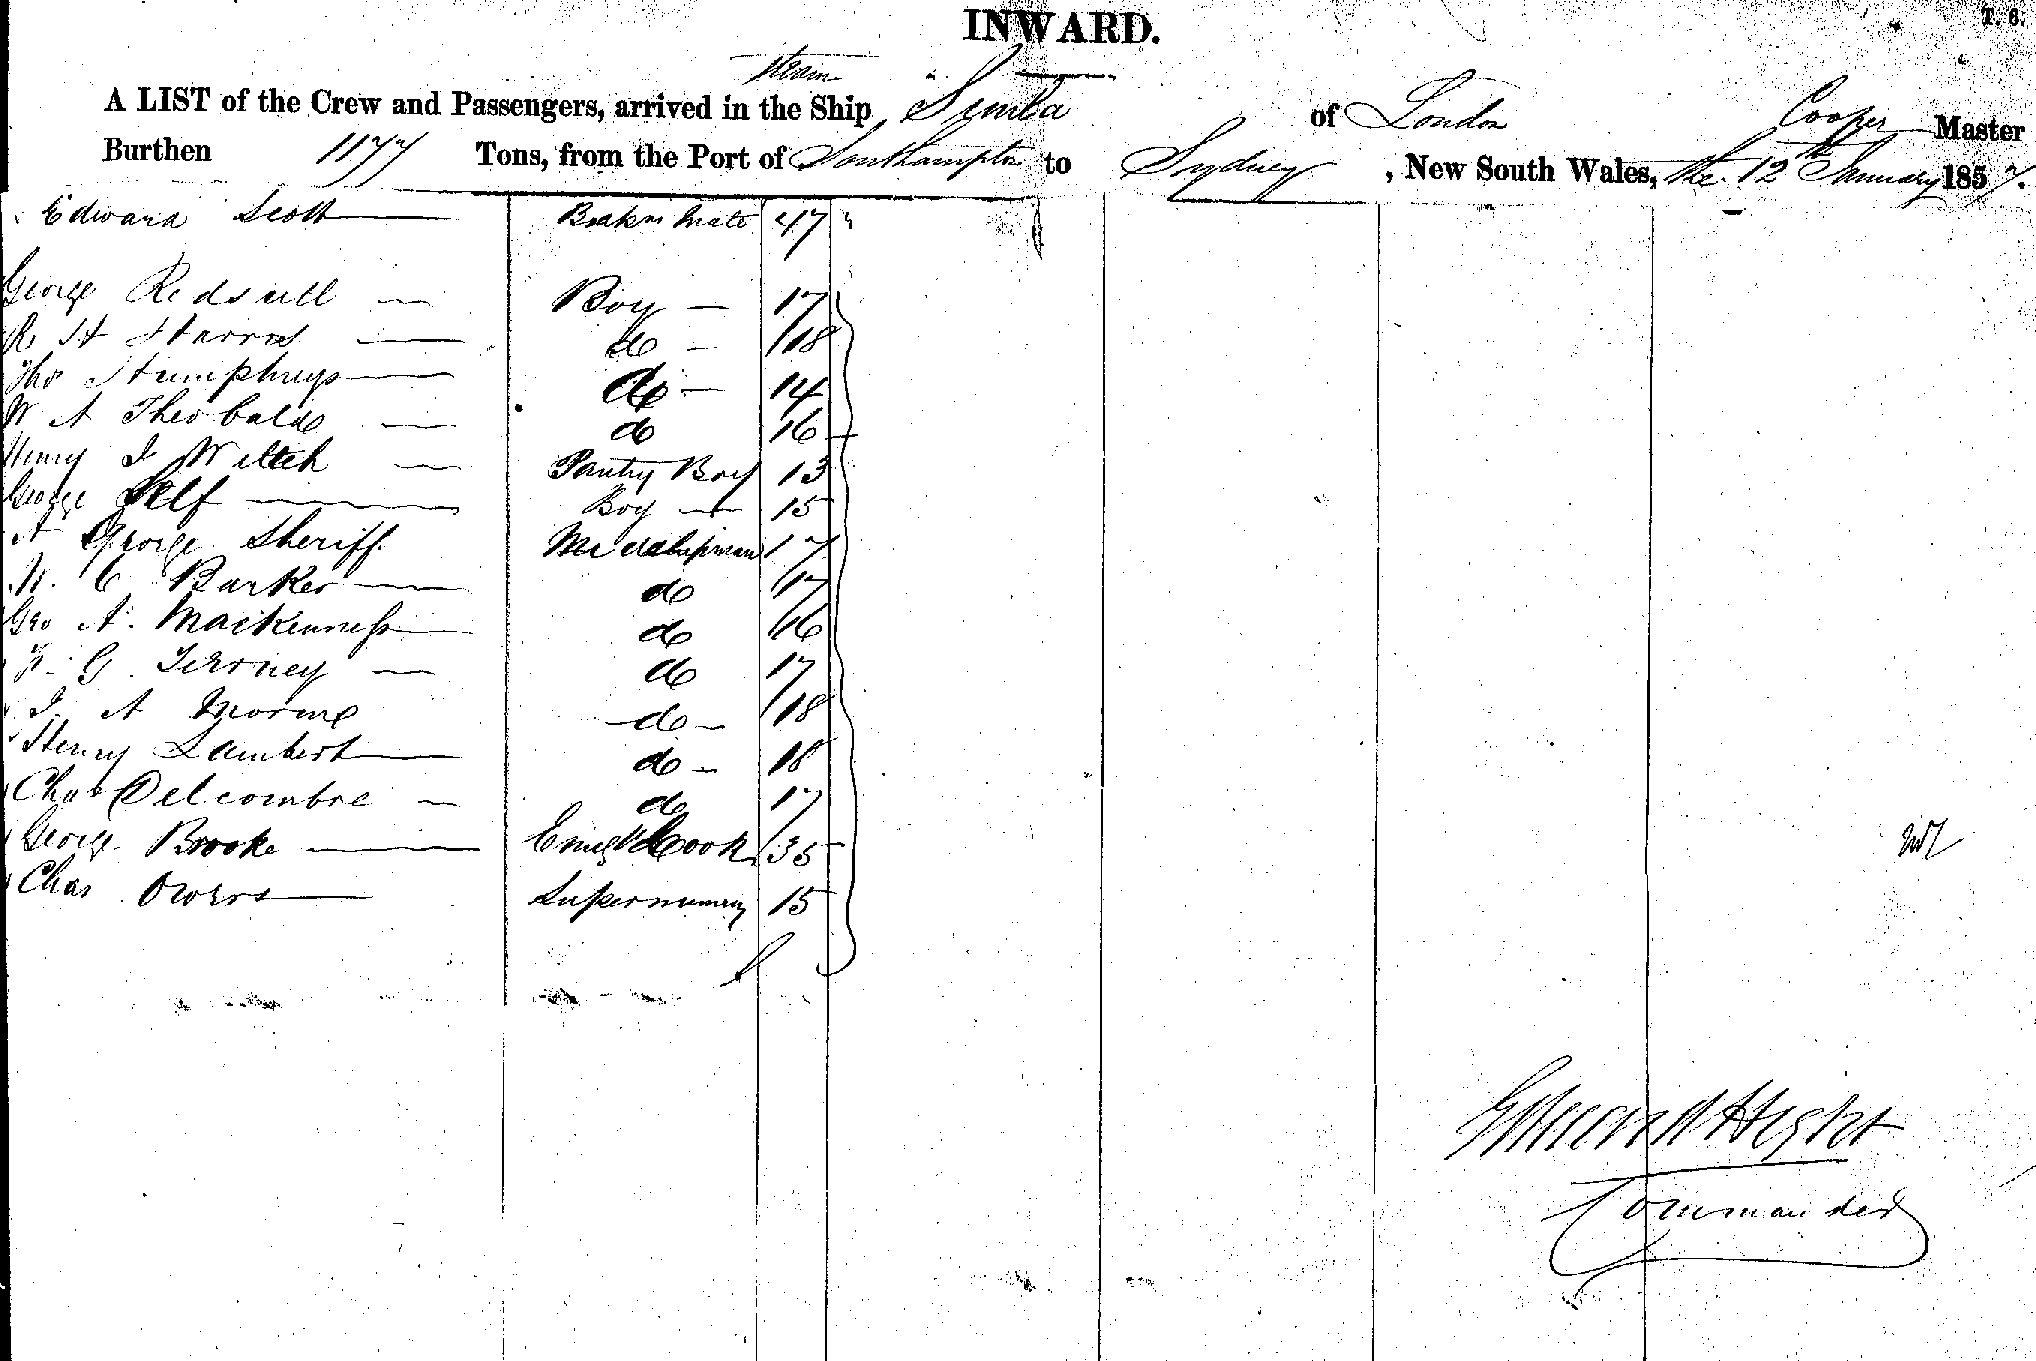 INWARD.
T. 6.
steam
A LIST of the Crew and Passengers, arrived in the Ship Simla of London Cooper Master
Burthen 1177 Tons, from the Port of Southampton to Sydney, New South Wales, the 12th January 1857.
Edward Scott Mate 47
George Redsull Boy 17
R H Harris do 18
Tho Humphreys do 14
W A Theobald do 16
Henry J Pantry Boy 13
George Self Boy 15
A George Sheriff Midshipman 17
C Barker do 17
Geo A. Mackenness do 16
G. Terney do 17
J. A do 18
Henry Lambert do 18
Chas Delcombre do 17
George Brooke Cook 35
Chas Owers Supernumery 15
Commander